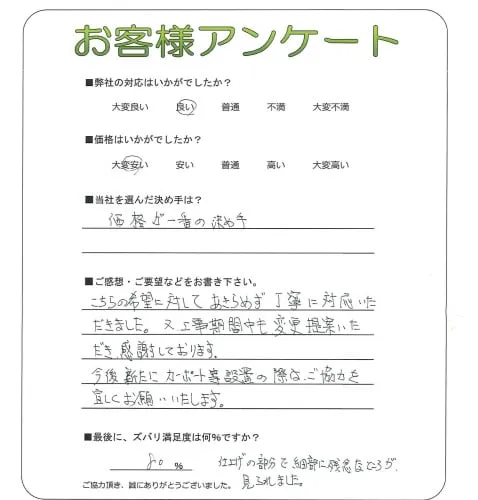 お客様アンケート
■弊社の対応はいかがでしたか？
大変良い 良い 普通 不満 大変不満
■価格はいかがでしたか？
大変安い 安い 普通 高い 大変高い
■当社を選んだ決め手は？
価格が一番の決め手
■ご感想・ご要望などをお書き下さい。
こちらの希望に対してあきらめず丁寧に対応いた
だきました。又工事期間中も変更提案いた
だき感謝しております。
今後新たにカーポート等設置の際はご協力を
宜しくお願いいたします。
■最後に、ズバリ満足度は何%ですか？
80 % 仕上げの部分で細部に残念なところが
ご協力頂き、誠にありがとうございました。 見られました。